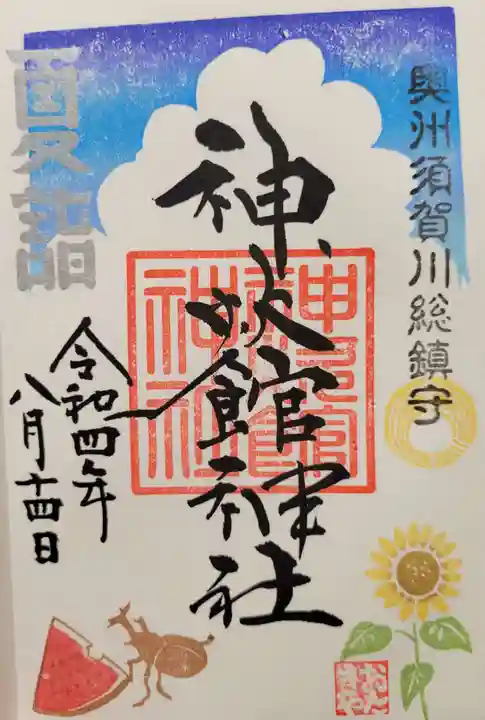 奥州須賀川総鎮守
神炊館神社
夏詣
令和四年
八月十四日